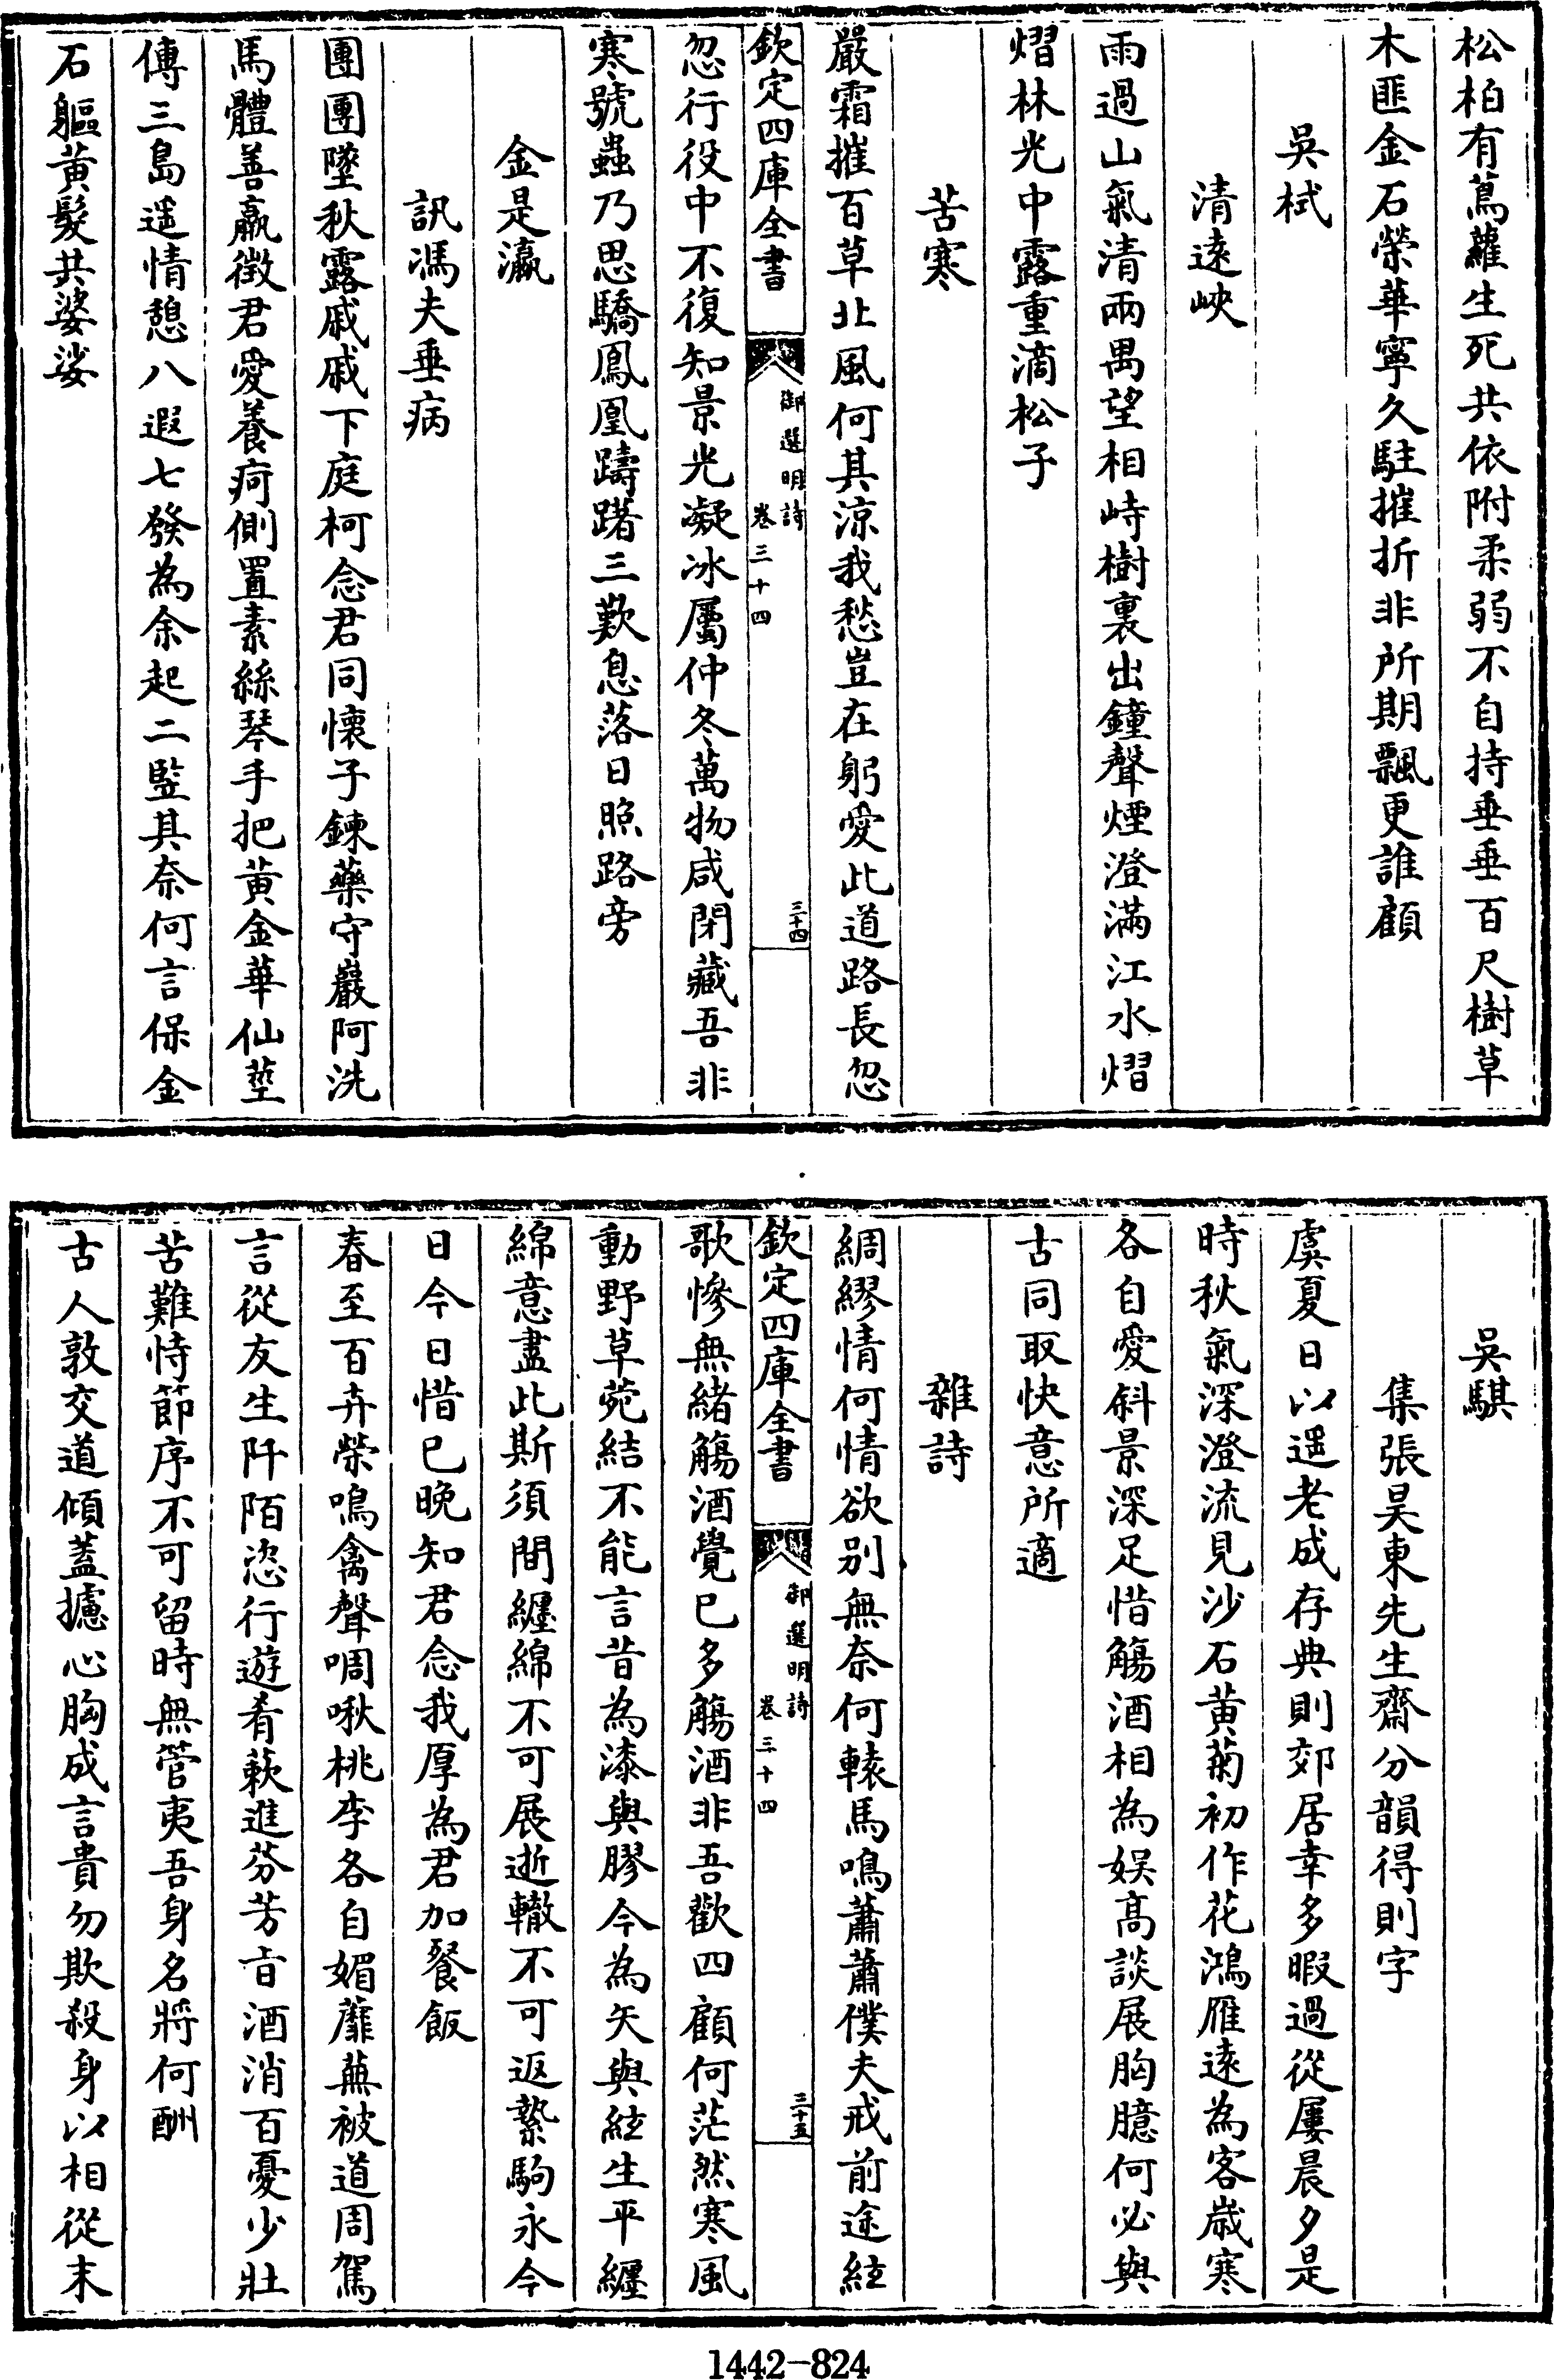 松柏有蔦蘿生死共依附柔弱不自持垂垂百尺樹草
木匪金石榮華寧久駐摧折非所期飄更誰顧
吳栻
清遠峽
雨過山氣清兩禺望相峙樹裏出鐘聲煙澄滿江水熠
熠林光中露重滴松子
苦寒
嚴霜摧百草北風何其涼我愁豈在躬愛此道路長忽
欽定四庫全書
御選明詩
卷三十四
三十四
忽行役中不復知景光凝冰屬仲冬萬物咸閉藏吾非
寒號蟲乃思驕鳳凰躊躇三歎息落日照路旁
金是瀛
訊馮夫垂病
團團墜秋露戚戚下庭柯念君同懷子鍊藥守巖阿洗
馬體善羸徵君愛養疴側置素絲琴手把黃金華仙莖
傳三島遥情憩八遐七發為余起二豎其奈何言保金
石軀黃髮共婆娑
吳騏
集張昊東先生齋分韻得則字
虞夏日以遥老成存典則郊居幸多暇過從屢晨夕是
時秋氣深澄流見沙石黃菊初作花鴻雁遠為客歲寒
各自愛斜景深足惜觴酒相為娛高談展胸臆何必與
古同取快意所適
雜詩
綢繆情何情欲别無奈何轅馬鳴蕭蕭僕夫戒前途絃
欽定四庫全書
御選明詩
卷三十四
三十五
歌慘無緒觴酒覺已多觴酒非吾歡四顧何茫然寒風
動野草菀結不能言昔為漆與膠今為矢與絃生平纏
綿意盡此斯須間纏綿不可展逝轍不可返縶駒永今
日今日惜已晚知君念我厚為君加餐飯
春至百卉榮鳴禽聲啁啾桃李各自媚蘼蕪被道周駕
言從友生阡陌恣行遊肴蔌進芬芳旨酒消百憂少壯
苦難恃節序不可留時無管夷吾身名將何酬
古人敦交道傾蓋攄心胸成言貴勿欺殺身以相從末
1442-824